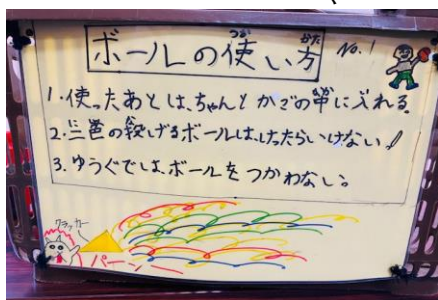 ボールの使い方 No.1
1.使ったあとは、ちゃんとかごの中に入れる
2.三色の投げるボールは、けったらいけない!
3.ゆうぐでは、ボールをつかわない。
クラッカー
パーン